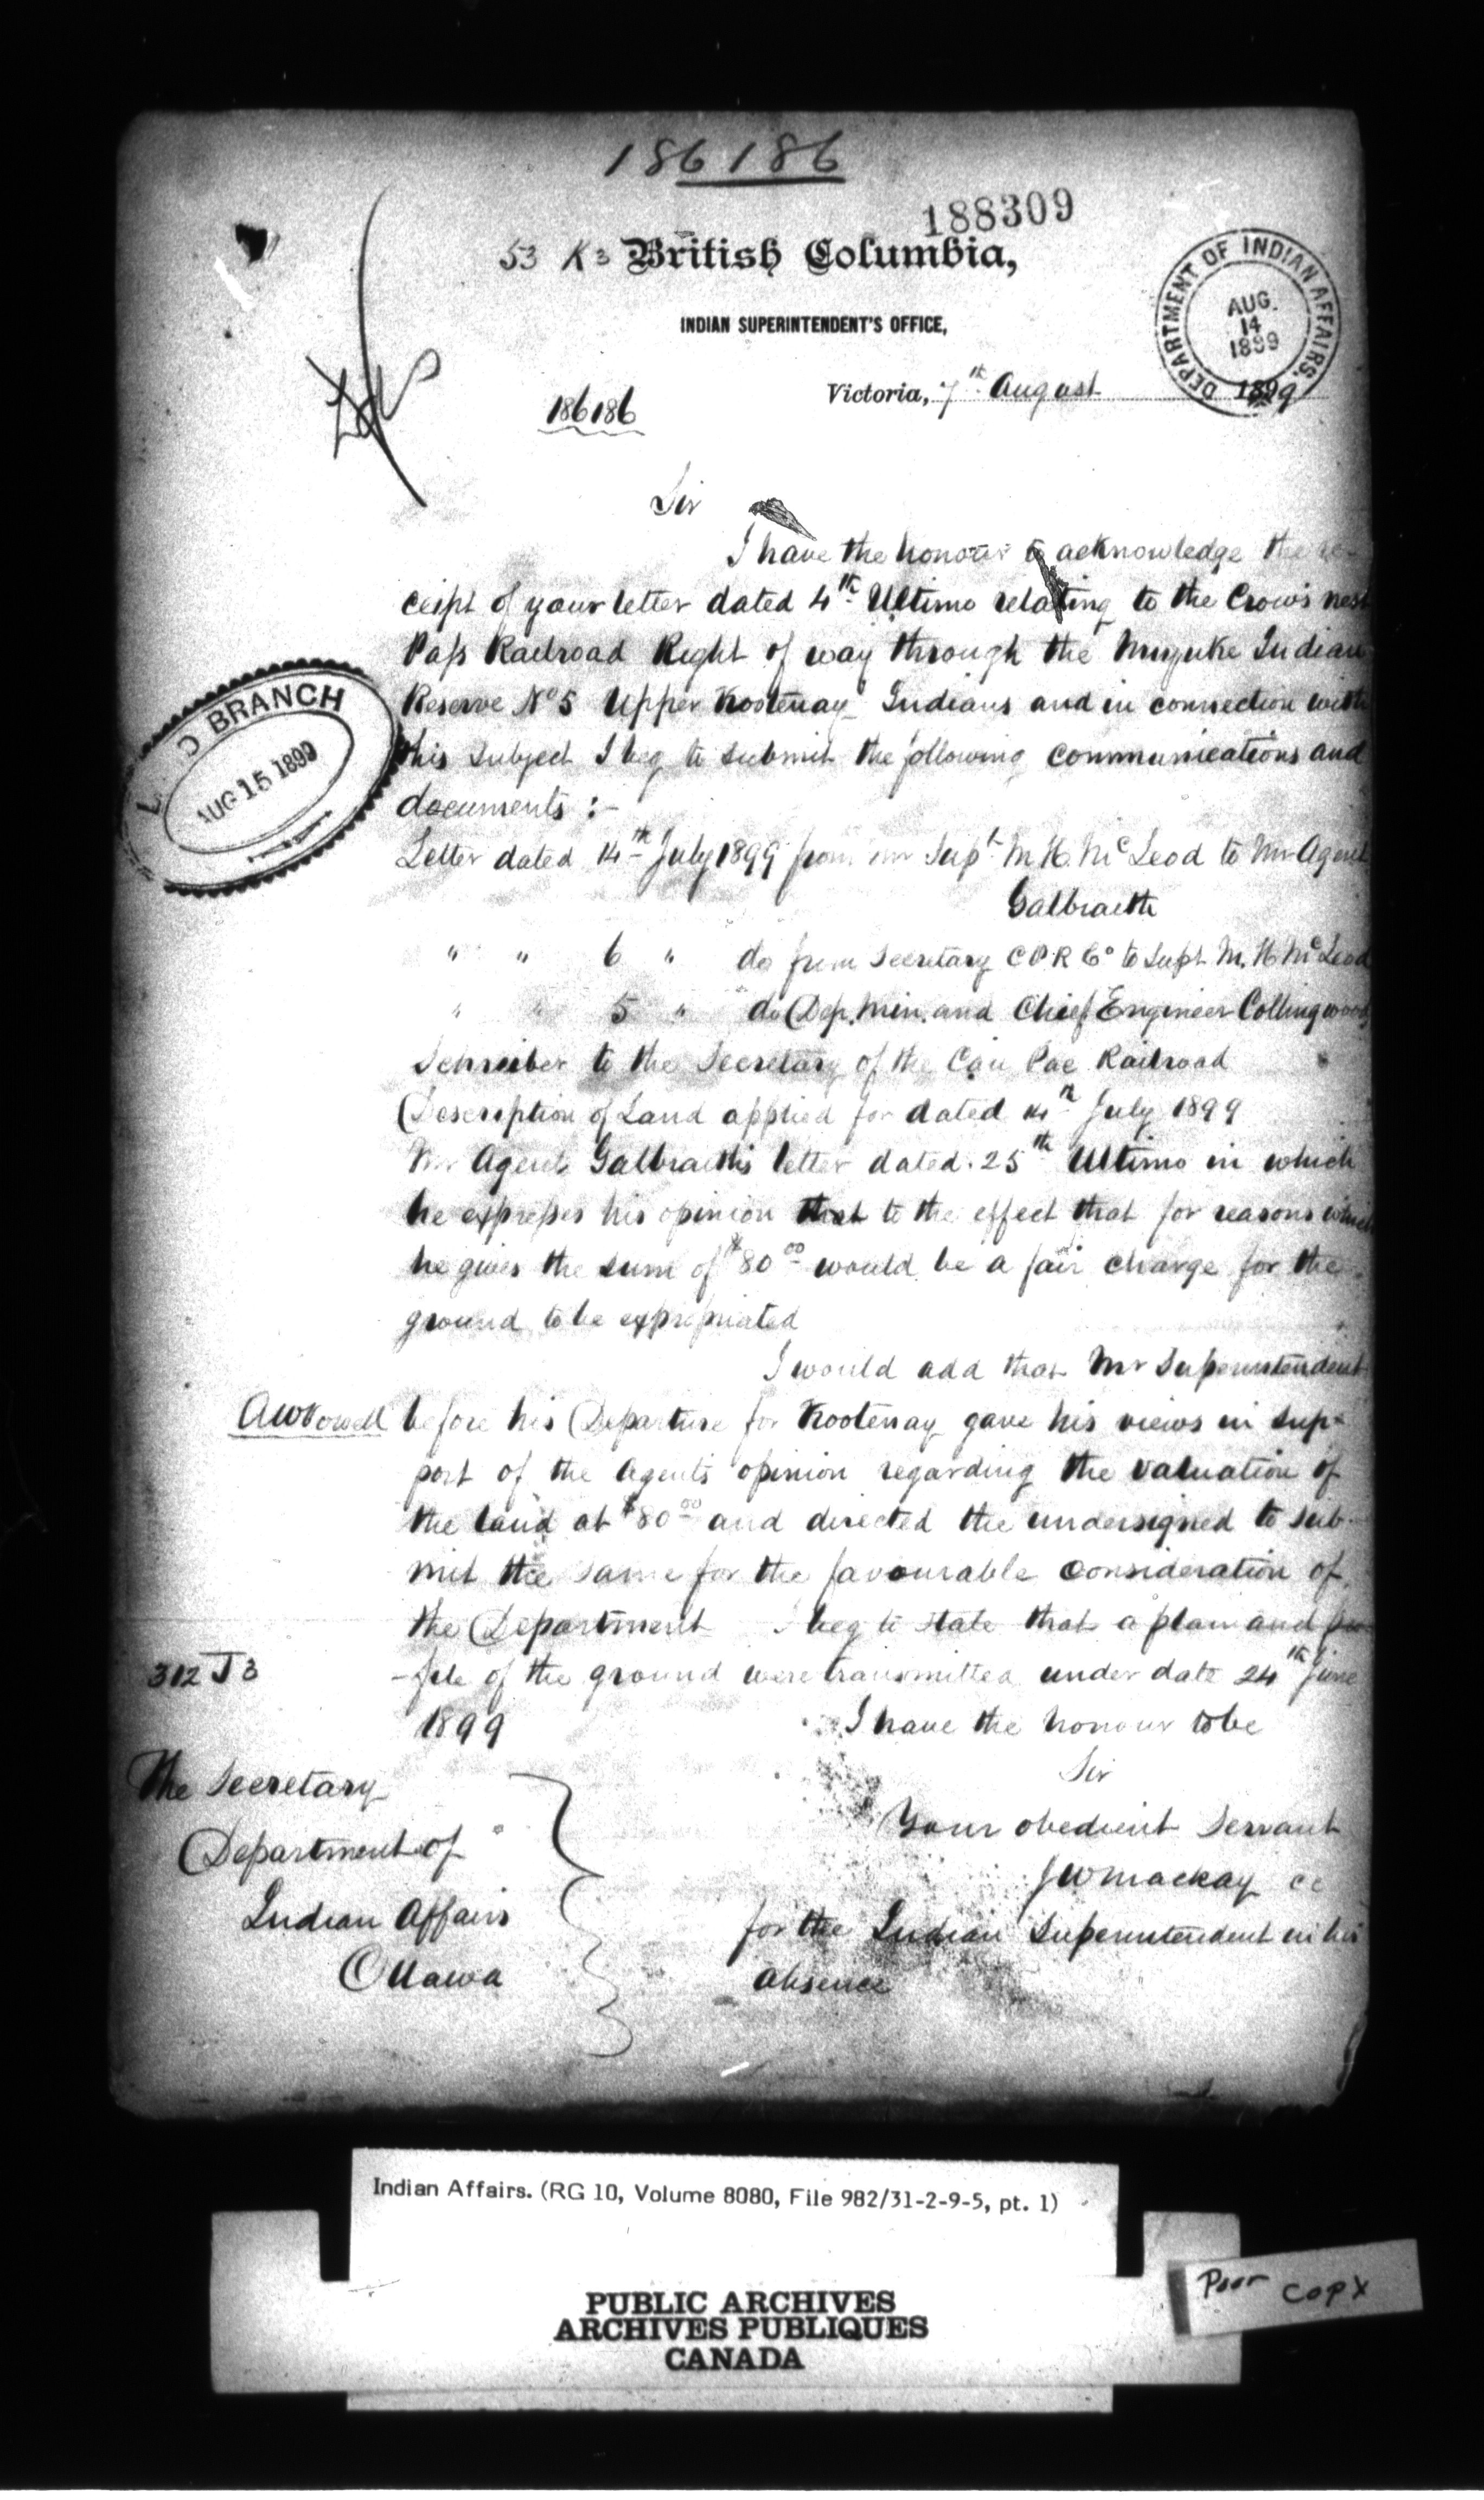 186186
188309
53 K3 British Columbia,
INDIAN SUPERINTENDENT'S OFFICE,
DEPARTMENT OF INDIAN AFFAIRS.
AUG. 14 1899
Victoria, 7th August 1899
186186
Sir
I have the honour to acknowledge the re-
ceipt of your letter dated 4th Ultimo relating to the Crow's nest
Pass Railroad Right of way through the Indian
Reserve No 5 Upper Kootenay Indians and in connection with
this subject I beg to submit the following communications and
documents :-
BRANCH
AUG 15 1899
Letter dated 14th July 1899 from Supt M. H. McLeod to Mr Agent
Galbraith
" " 6 " do from Secretary C P R Co to Supt M. H. McLeod
" " 5 " do Dep. Min. and Chief Engineer Collingwood
Schreiber to the Secretary of the Can Pac Railroad
Description of Land applied for dated 14th July 1899
Mr Agent Galbraith's letter dated 25th Ultimo in which
he expresses his opinion that to the effect that for reasons which
he gives the sum of $80 00 would be a fair charge for the
ground to be expropriated
I would add that Mr Superintendent
A W Vowell before his Departure for Kootenay gave his views in sup-
port of the Agents opinion regarding the valuation of
the land at $80 00 and directed the undersigned to sub-
mit the same for the favourable consideration of
the Department I beg to state that a plan and pro
-file of the ground were transmitted under date 24th June
312 J3
1899
I have the honour to be
Sir
Your obedient Servant
J W Mackay
for the Indian Superintendent in his
absence
The Secretary
Department of
Indian Affairs
Ottawa
Indian Affairs. (RG 10, Volume 8080, File 982/31-2-9-5, pt. 1)
PUBLIC ARCHIVES
ARCHIVES PUBLIQUES
CANADA
Poor copy